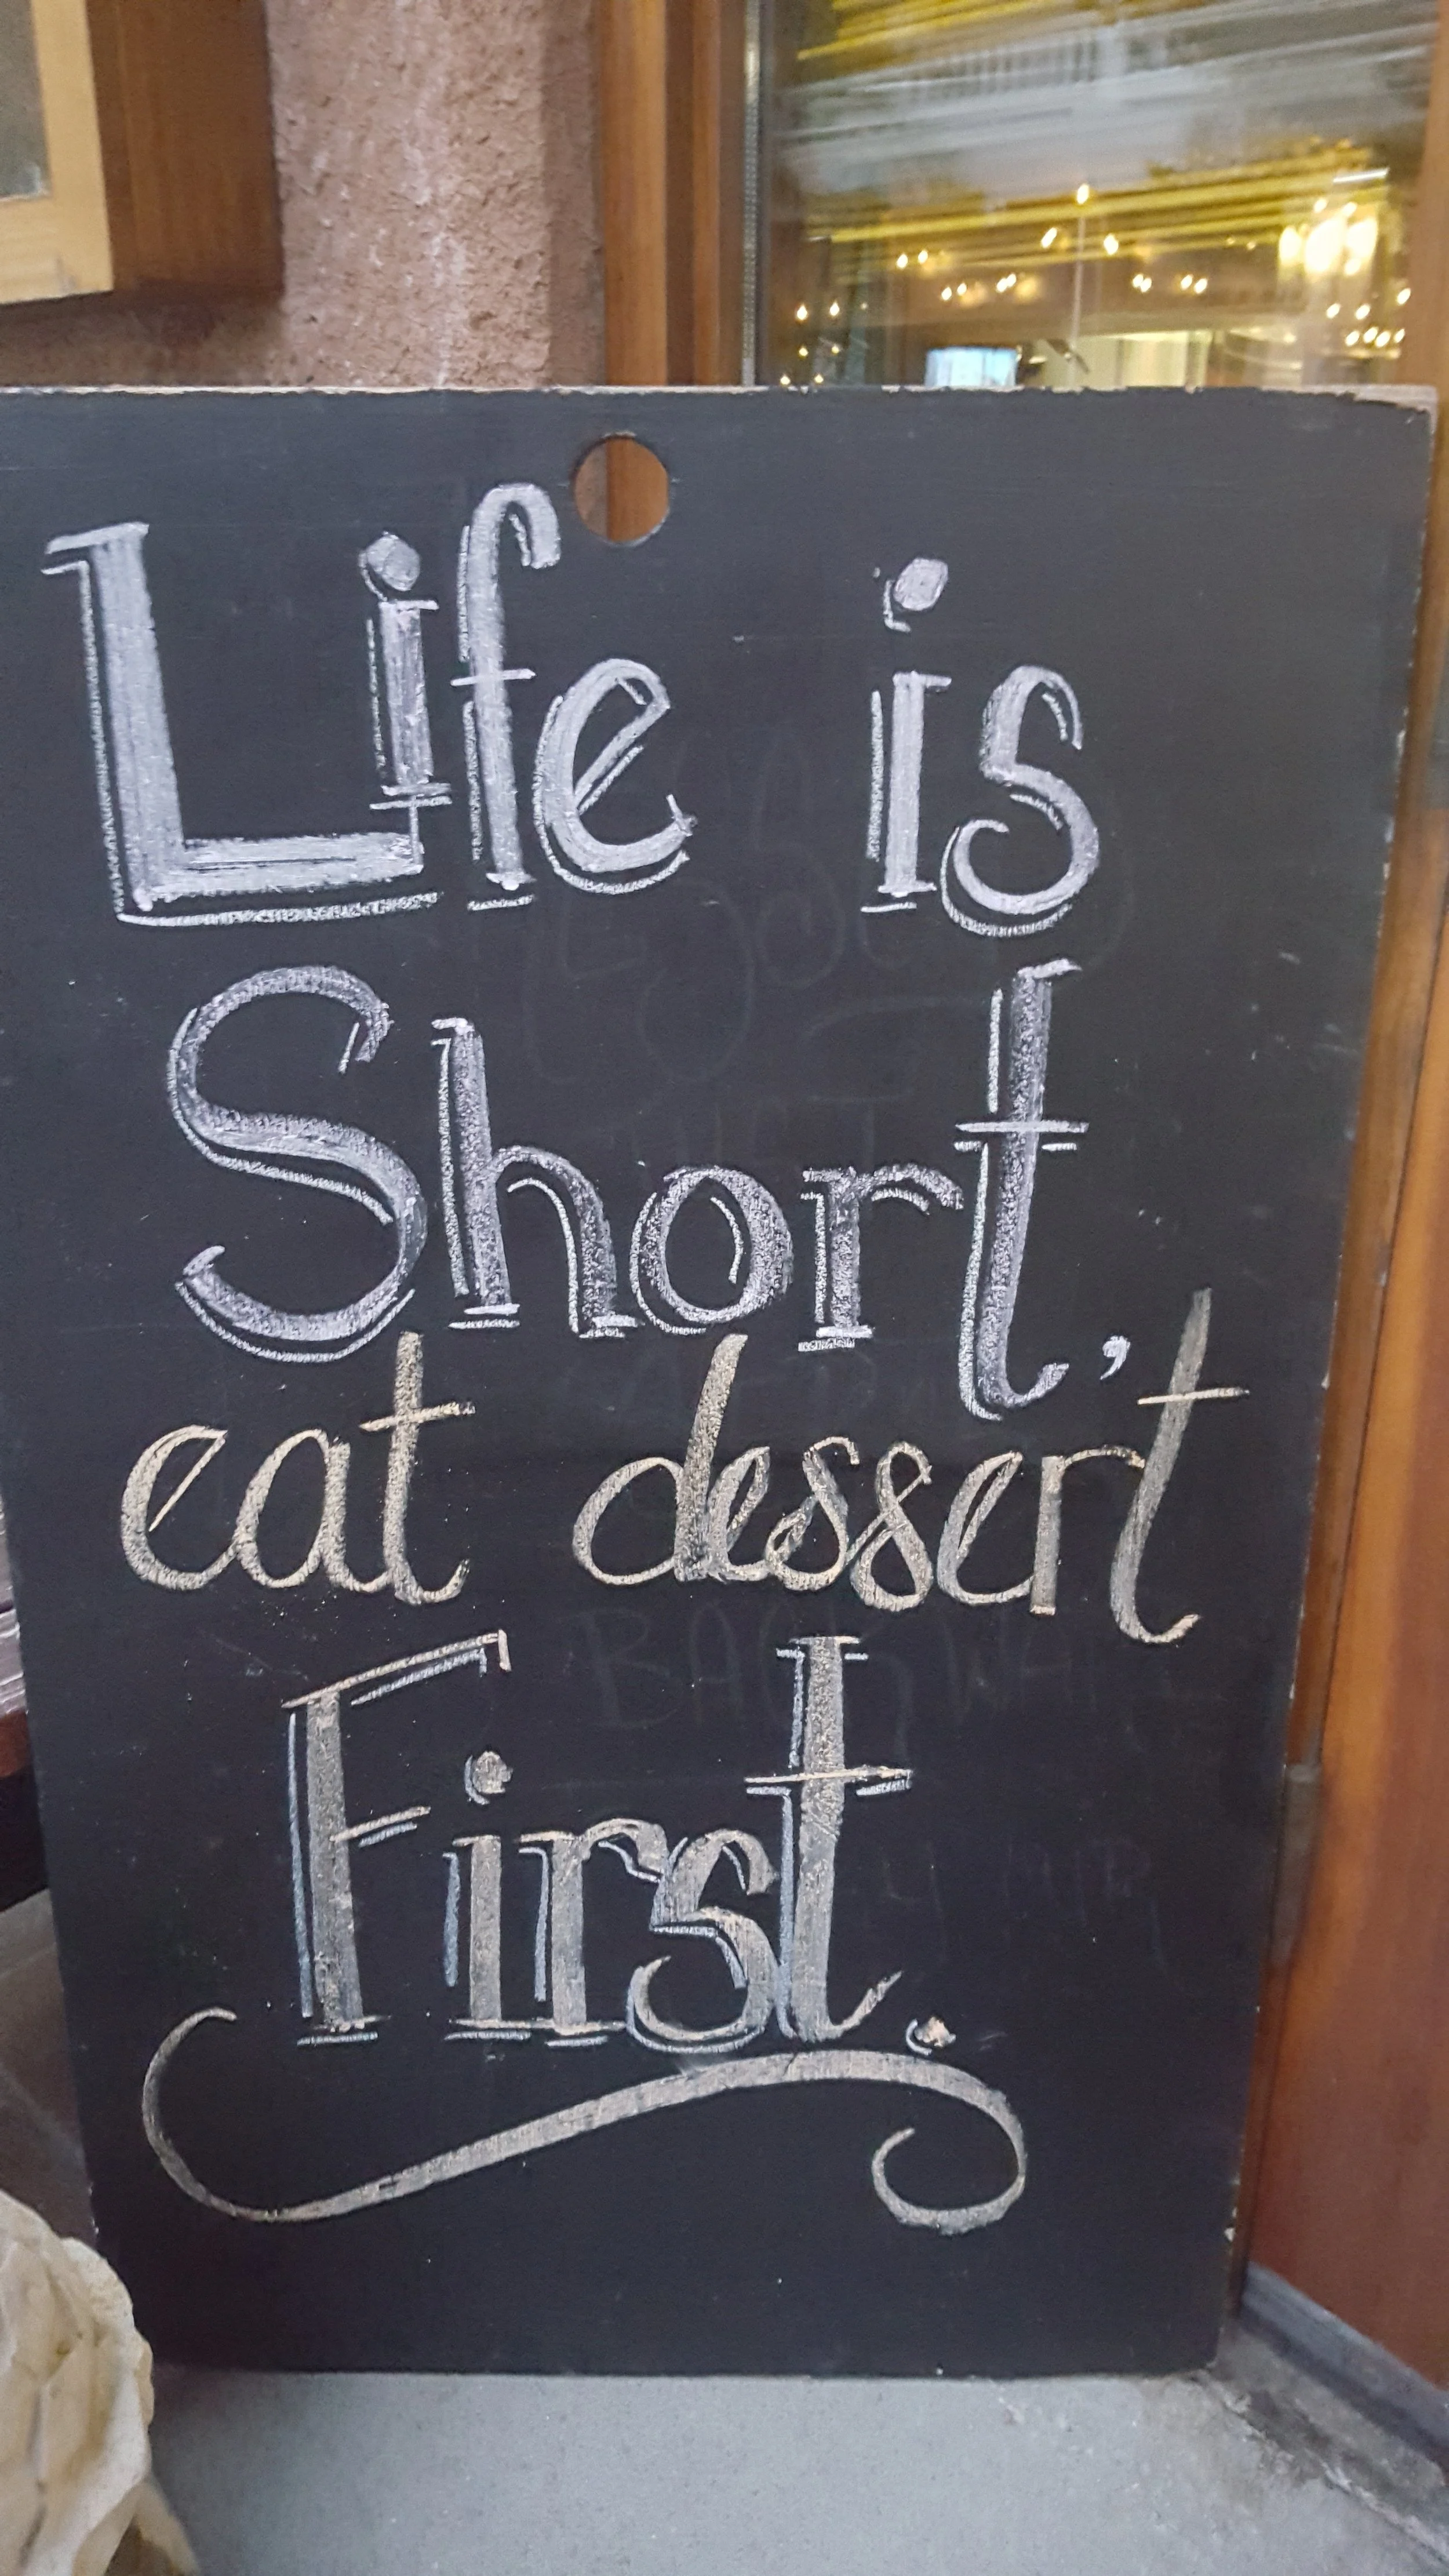 Life is
Short,
eat dessert
First.